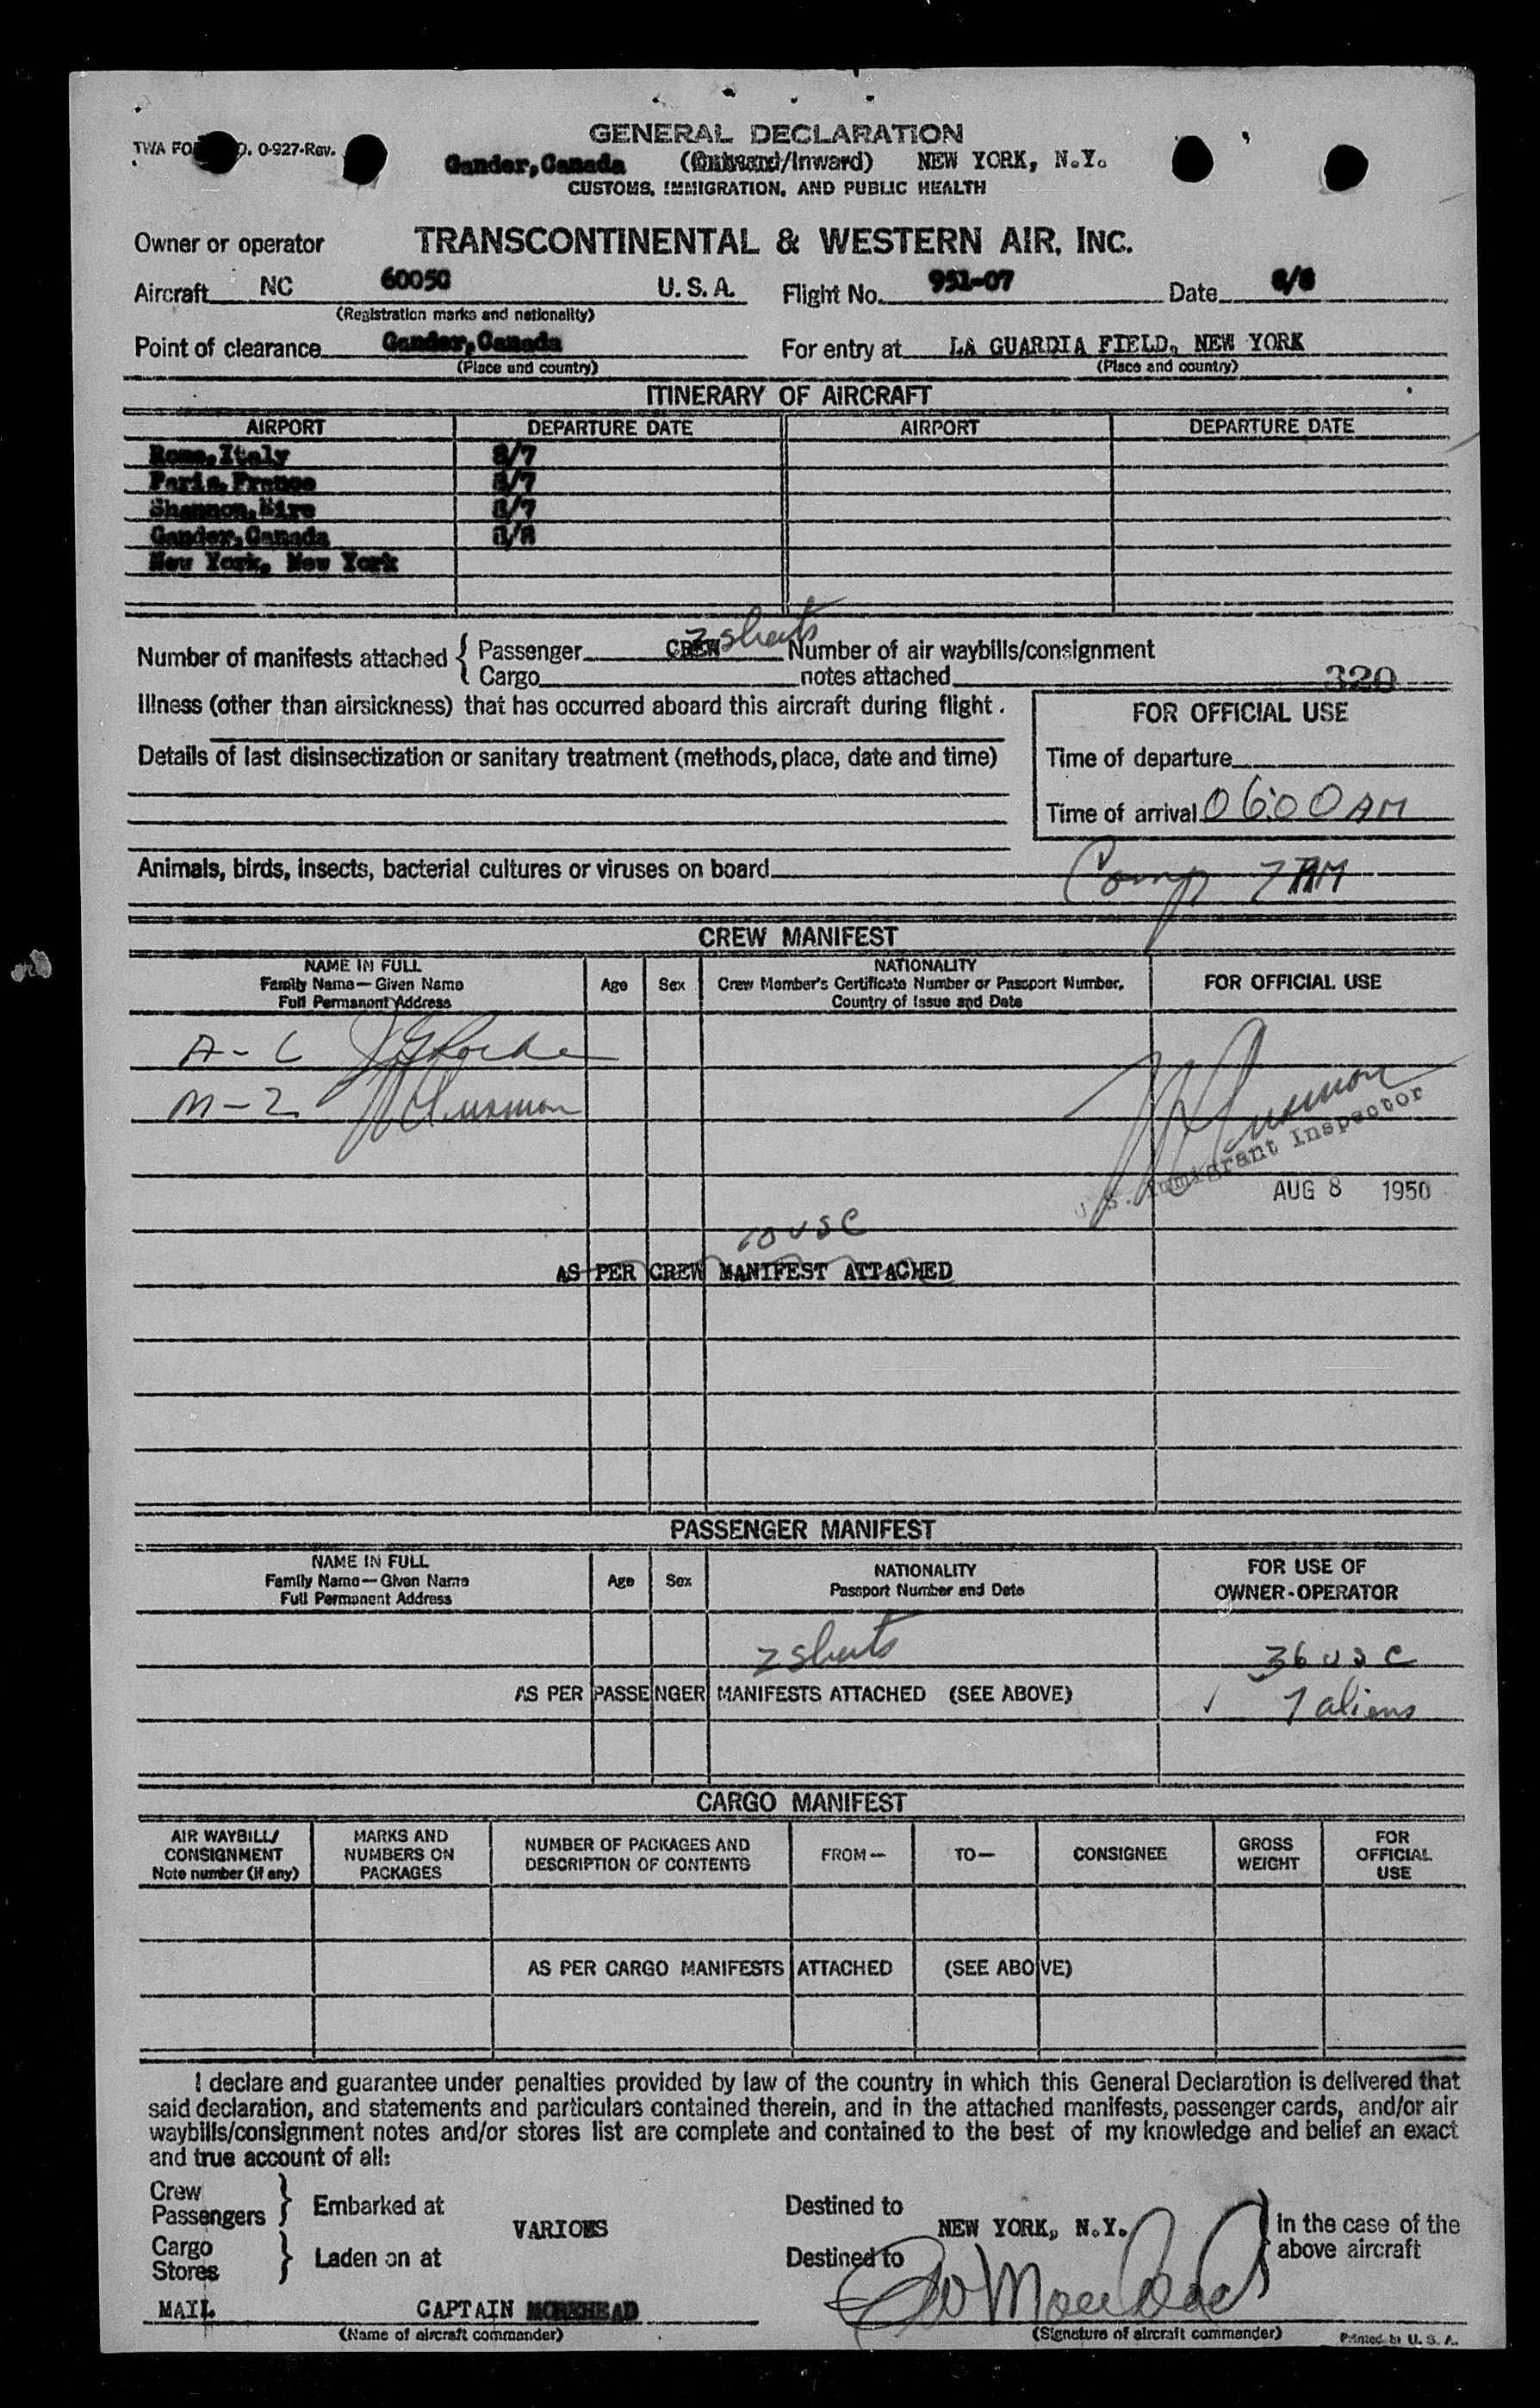 GENERAL DECLARATION
TWA FO O. 0-927-Rev.
Gander, Canada (Outward/Inward) NEW YORK, N.Y.
CUSTOMS, IMMIGRATION, AND PUBLIC HEALTH
Owner or operator TRANSCONTINENTAL & WESTERN AIR, INC.
Aircraft NC 6005C U.S.A. Flight No. 951-07 Date 8/8
(Registration marks and nationality)
Point of clearance Gander, Canada For entry at LA GUARDIA FIELD, NEW YORK
(Place and country) (Place and country)
ITINERARY OF AIRCRAFT
AIRPORT DEPARTURE DATE AIRPORT DEPARTURE DATE
Rome, Italy 8/7
Paris, France 8/7
Shannon, Eire 8/7
Gander, Canada 8/8
New York, New York
Number of manifests attached { Passenger CREW 2 sheets Number of air waybills/consignment
Cargo notes attached 320
Illness (other than airsickness) that has occurred aboard this aircraft during flight.
FOR OFFICIAL USE
Details of last disinsectization or sanitary treatment (methods, place, date and time)
Time of departure
Time of arrival 06:00 AM
Animals, birds, insects, bacterial cultures or viruses on board
Comp 7 AM
CREW MANIFEST
NAME IN FULL
Family Name—Given Name
Full Permanent Address
Age Sex
NATIONALITY
Crew Member's Certificate Number or Passport Number,
Country of Issue and Date
FOR OFFICIAL USE
A-6
M-2
U.S. Immigrant Inspector
AUG 8 1950
10 USC
AS PER CREW MANIFEST ATTACHED
PASSENGER MANIFEST
NAME IN FULL
Family Name—Given Name
Full Permanent Address
Age Sex
NATIONALITY
Passport Number and Date
FOR USE OF
OWNER-OPERATOR
2 sheets 36 USC
AS PER PASSENGER MANIFESTS ATTACHED (SEE ABOVE) ✓ 7 aliens
CARGO MANIFEST
AIR WAYBILL/
CONSIGNMENT
Note number (if any)
MARKS AND
NUMBERS ON
PACKAGES
NUMBER OF PACKAGES AND
DESCRIPTION OF CONTENTS
FROM— TO— CONSIGNEE
GROSS
WEIGHT
FOR
OFFICIAL
USE
AS PER CARGO MANIFESTS ATTACHED (SEE ABOVE)
I declare and guarantee under penalties provided by law of the country in which this General Declaration is delivered that
said declaration, and statements and particulars contained therein, and in the attached manifests, passenger cards, and/or air
waybills/consignment notes and/or stores list are complete and contained to the best of my knowledge and belief an exact
and true account of all:
Crew
Passengers } Embarked at Destined to
VARIOUS NEW YORK, N.Y.
Cargo
Stores } Laden on at Destined to
In the case of the
above aircraft
MAIL CAPTAIN MOREHEAD
(Name of aircraft commander) (Signature of aircraft commander) Printed in U.S.A.